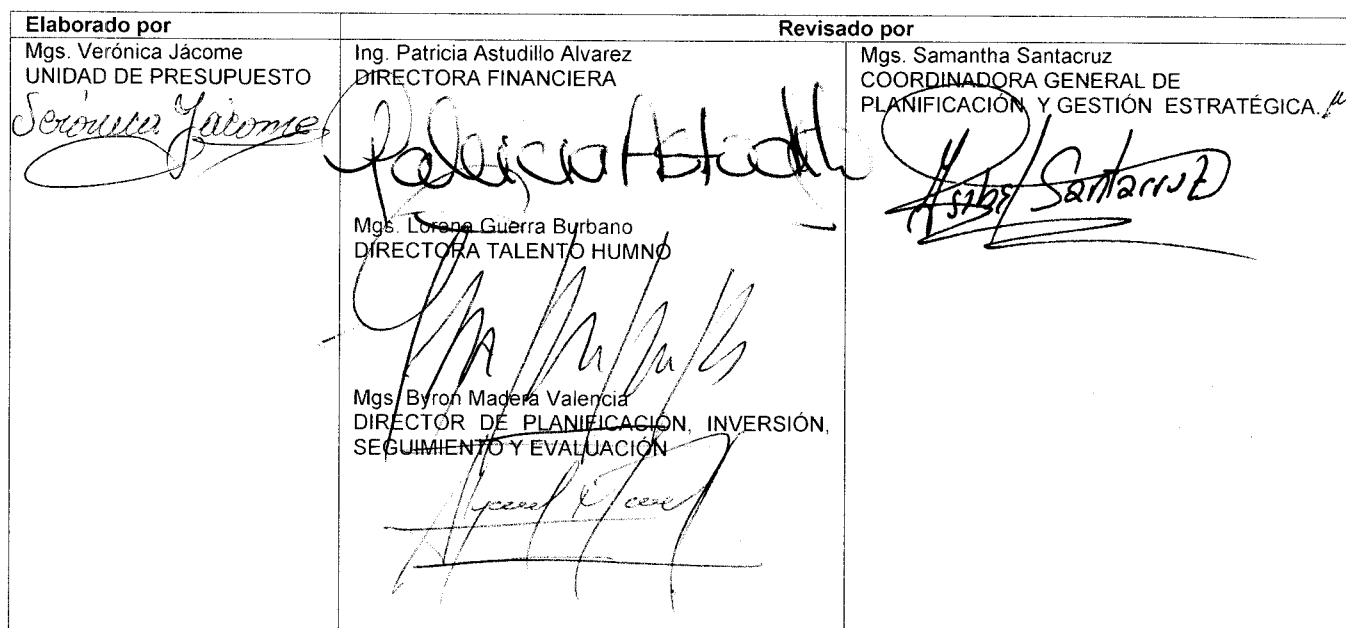 Elaborado por
Revisado por
Mgs. Verónica Jácome
UNIDAD DE PRESUPUESTO
Verónica Jácome
Ing. Patricia Astudillo Alvarez
DIRECTORA FINANCIERA
Patricia Astudillo
Mgs. Lorena Guerra Burbano
DIRECTORA TALENTO HUMNO
Mgs. Byron Madera Valencia
DIRECTOR DE PLANIFICACIÓN, INVERSIÓN,
SEGUIMIENTO Y EVALUACIÓN
Mgs. Samantha Santacruz
COORDINADORA GENERAL DE
PLANIFICACIÓN Y GESTIÓN ESTRATÉGICA.
Santacruz